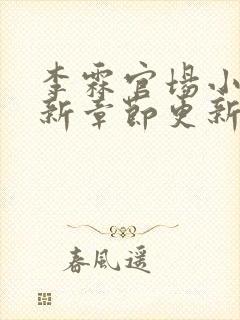 李霖官场小
新章节更新
春風遥